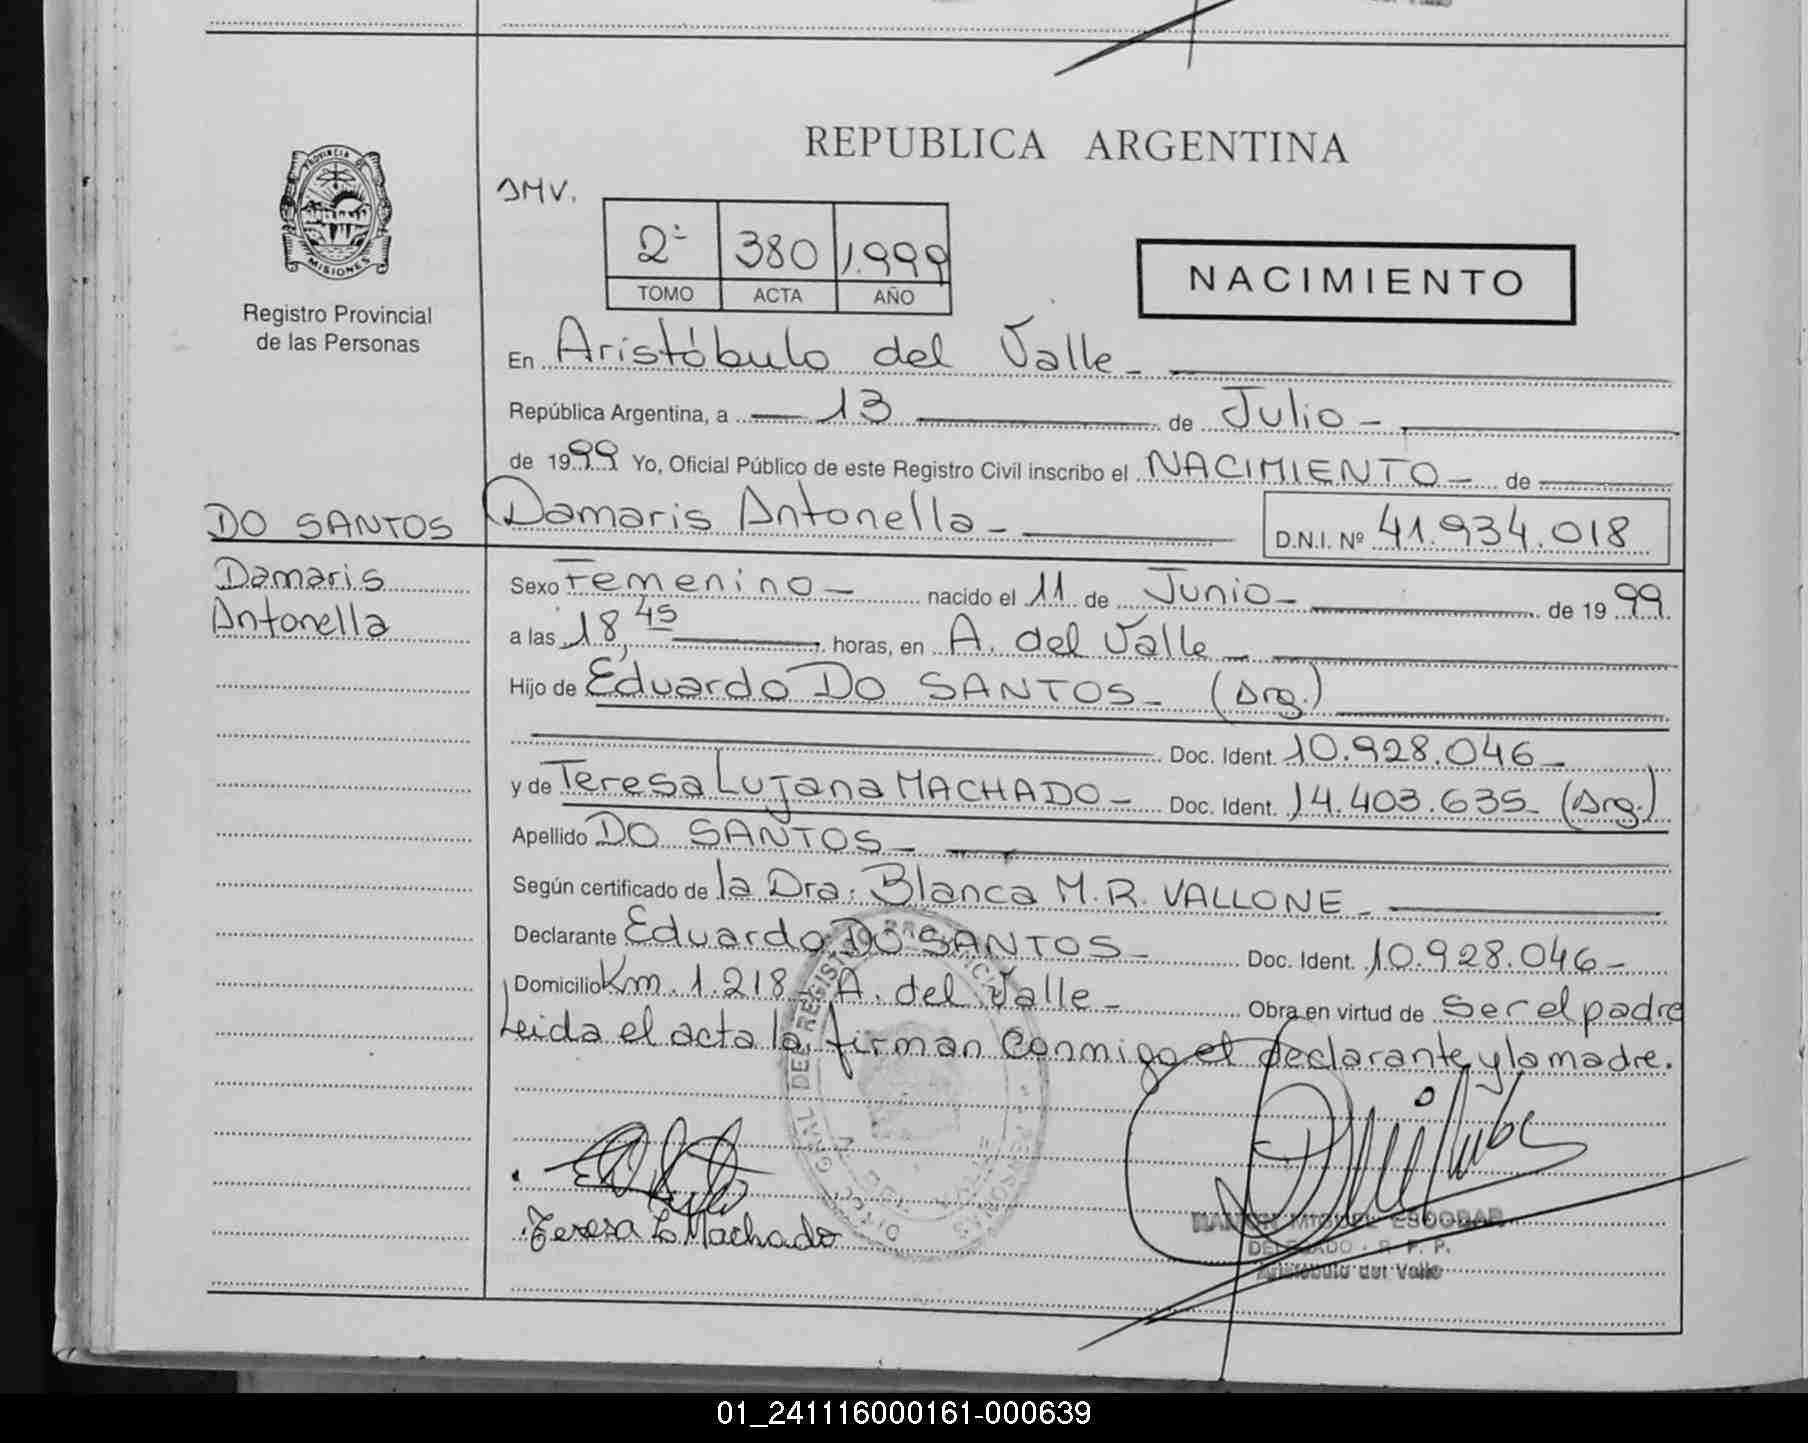 REPUBLICA ARGENTINA
PROVINCIA DE
MISIONES
Registro Provincial
de las Personas
JMV.
2º 380 1.999
TOMO ACTA AÑO
NACIMIENTO
En Aristóbulo del Valle
República Argentina, a 13 de Julio
de 1999 Yo, Oficial Público de este Registro Civil inscribo el NACIMIENTO de
DO SANTOS
Damaris
Antonella
Damaris Antonella
D.N.I. Nº 41.934.018
Sexo Femenino nacido el 11 de Junio de 1999
a las 18,45 horas, en A. del Valle
Hijo de Eduardo DO SANTOS (Arg.)
Doc. Ident. 10.928.046
y de Teresa Lujana MACHADO Doc. Ident. 14.403.635 (Arg.)
Apellido DO SANTOS
Según certificado de la Dra: Blanca M. R. VALLONE
Declarante Eduardo DO SANTOS Doc. Ident. 10.928.046
Domicilio Km. 1.218 - A. del Valle Obra en virtud de ser el padre
Leida el acta la firman conmigo el declarante y la madre.
Teresa L Machado
RAMON MIGUEL ESCOBAR
DELEGADO - R. P. P.
Aristobulo del Valle
01_241116000161-000639